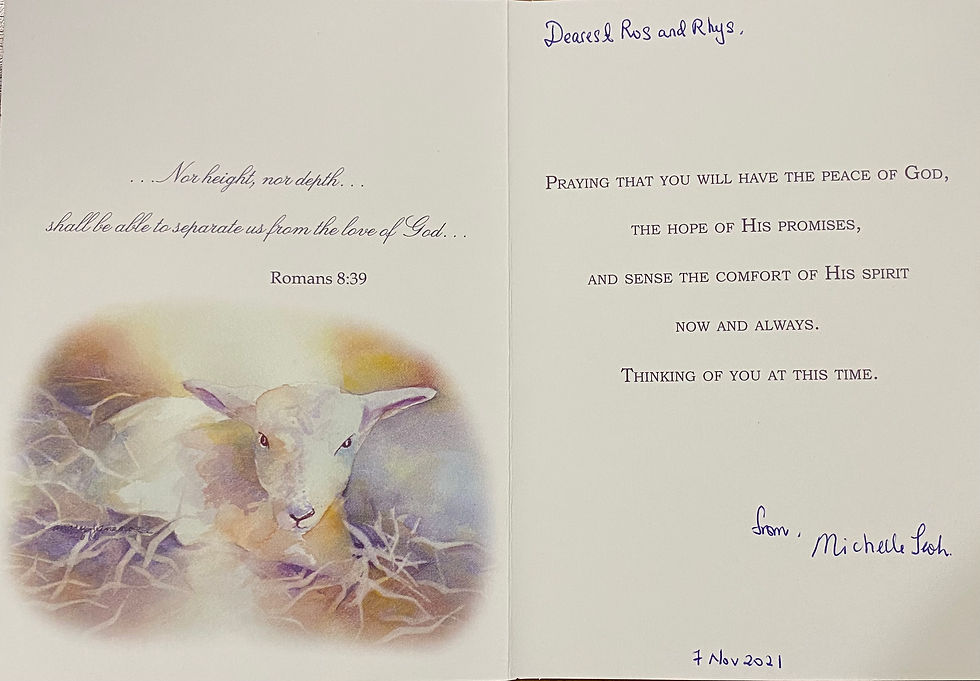 ...Nor height, nor depth...
shall be able to separate us from the love of God...
Romans 8:39
Dearest Ros and Rhys,
PRAYING THAT YOU WILL HAVE THE PEACE OF GOD,
THE HOPE OF HIS PROMISES,
AND SENSE THE COMFORT OF HIS SPIRIT
NOW AND ALWAYS.
THINKING OF YOU AT THIS TIME.
from,
Michelle
7 Nov 2021